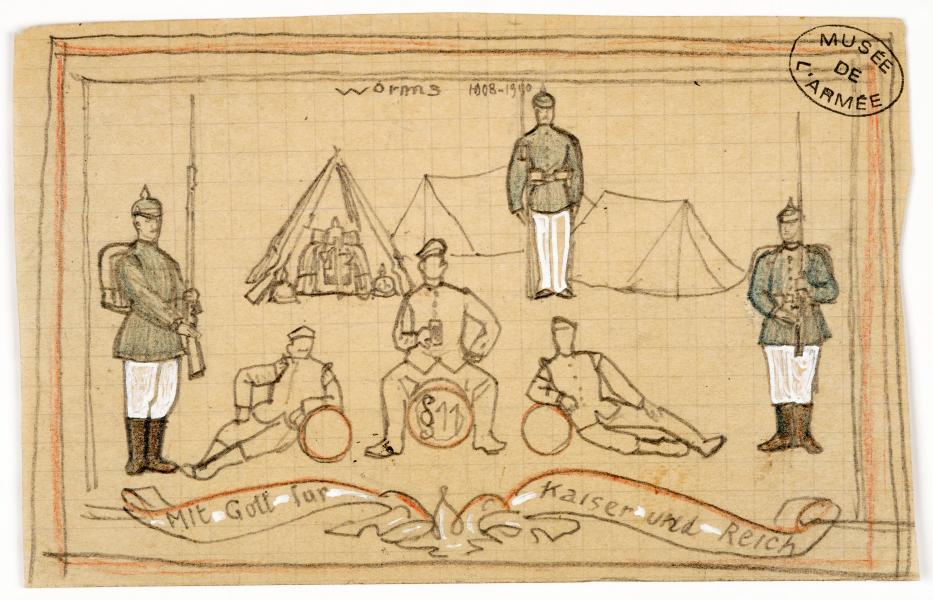 MUSÉE
DE
L'ARMÉE
Worms 1908-1910
§11
Mit Gott für
Kaiser und Reich